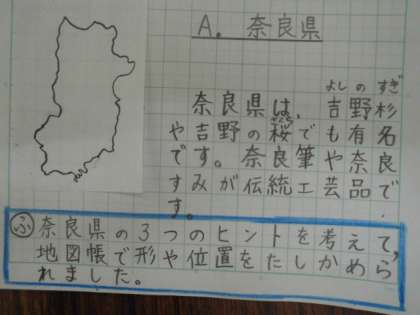 A. 奈良県
よしの すぎ
奈良県は、吉野杉
さくら
や吉野の桜でも有名
です。奈良筆や奈良
すみが伝統工芸品で
す。
ふ 奈良県の3つのヒントを考えて、
地図帳で形や位置をたしかめら
れました。